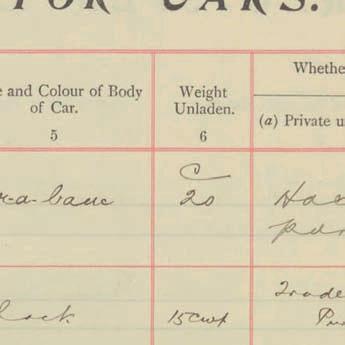 FOR CARS.
e and Colour of Body
of Car.
5
Weight
Unladen.
6
Whethe
(a) Private u
r-a-banc
C
20
Ha
lack
15 Cwt
Trade
Pu